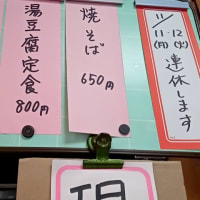 11/11(月)・12(火)
連休します
焼そば
650円
湯豆腐定食
800円